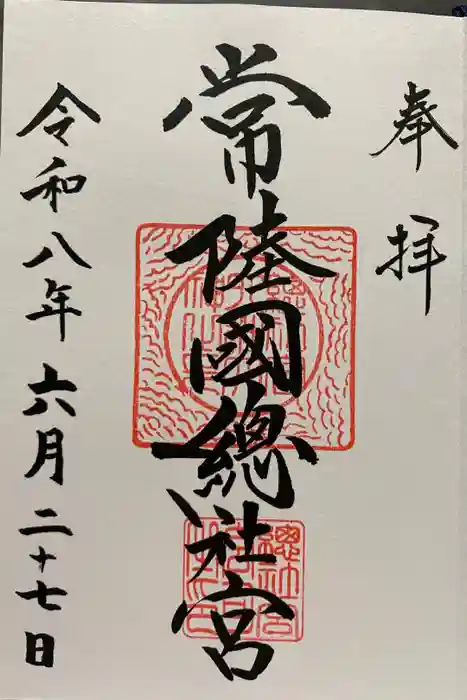 奉拝
常陸國總社宮
令和八年六月二十七日